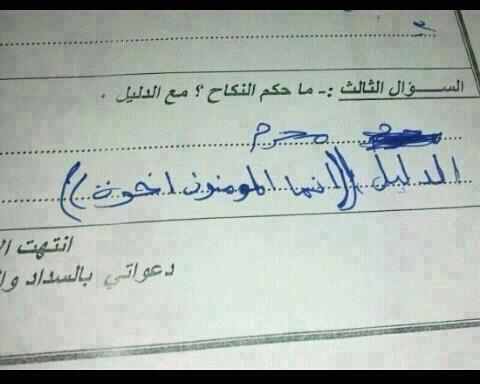 السؤال الثالث :- ما حكم النكاح ؟ مع الدليل .
محرم
الدليل ((انما المومنون اخوة))
انتهت
دعواتي بالسداد